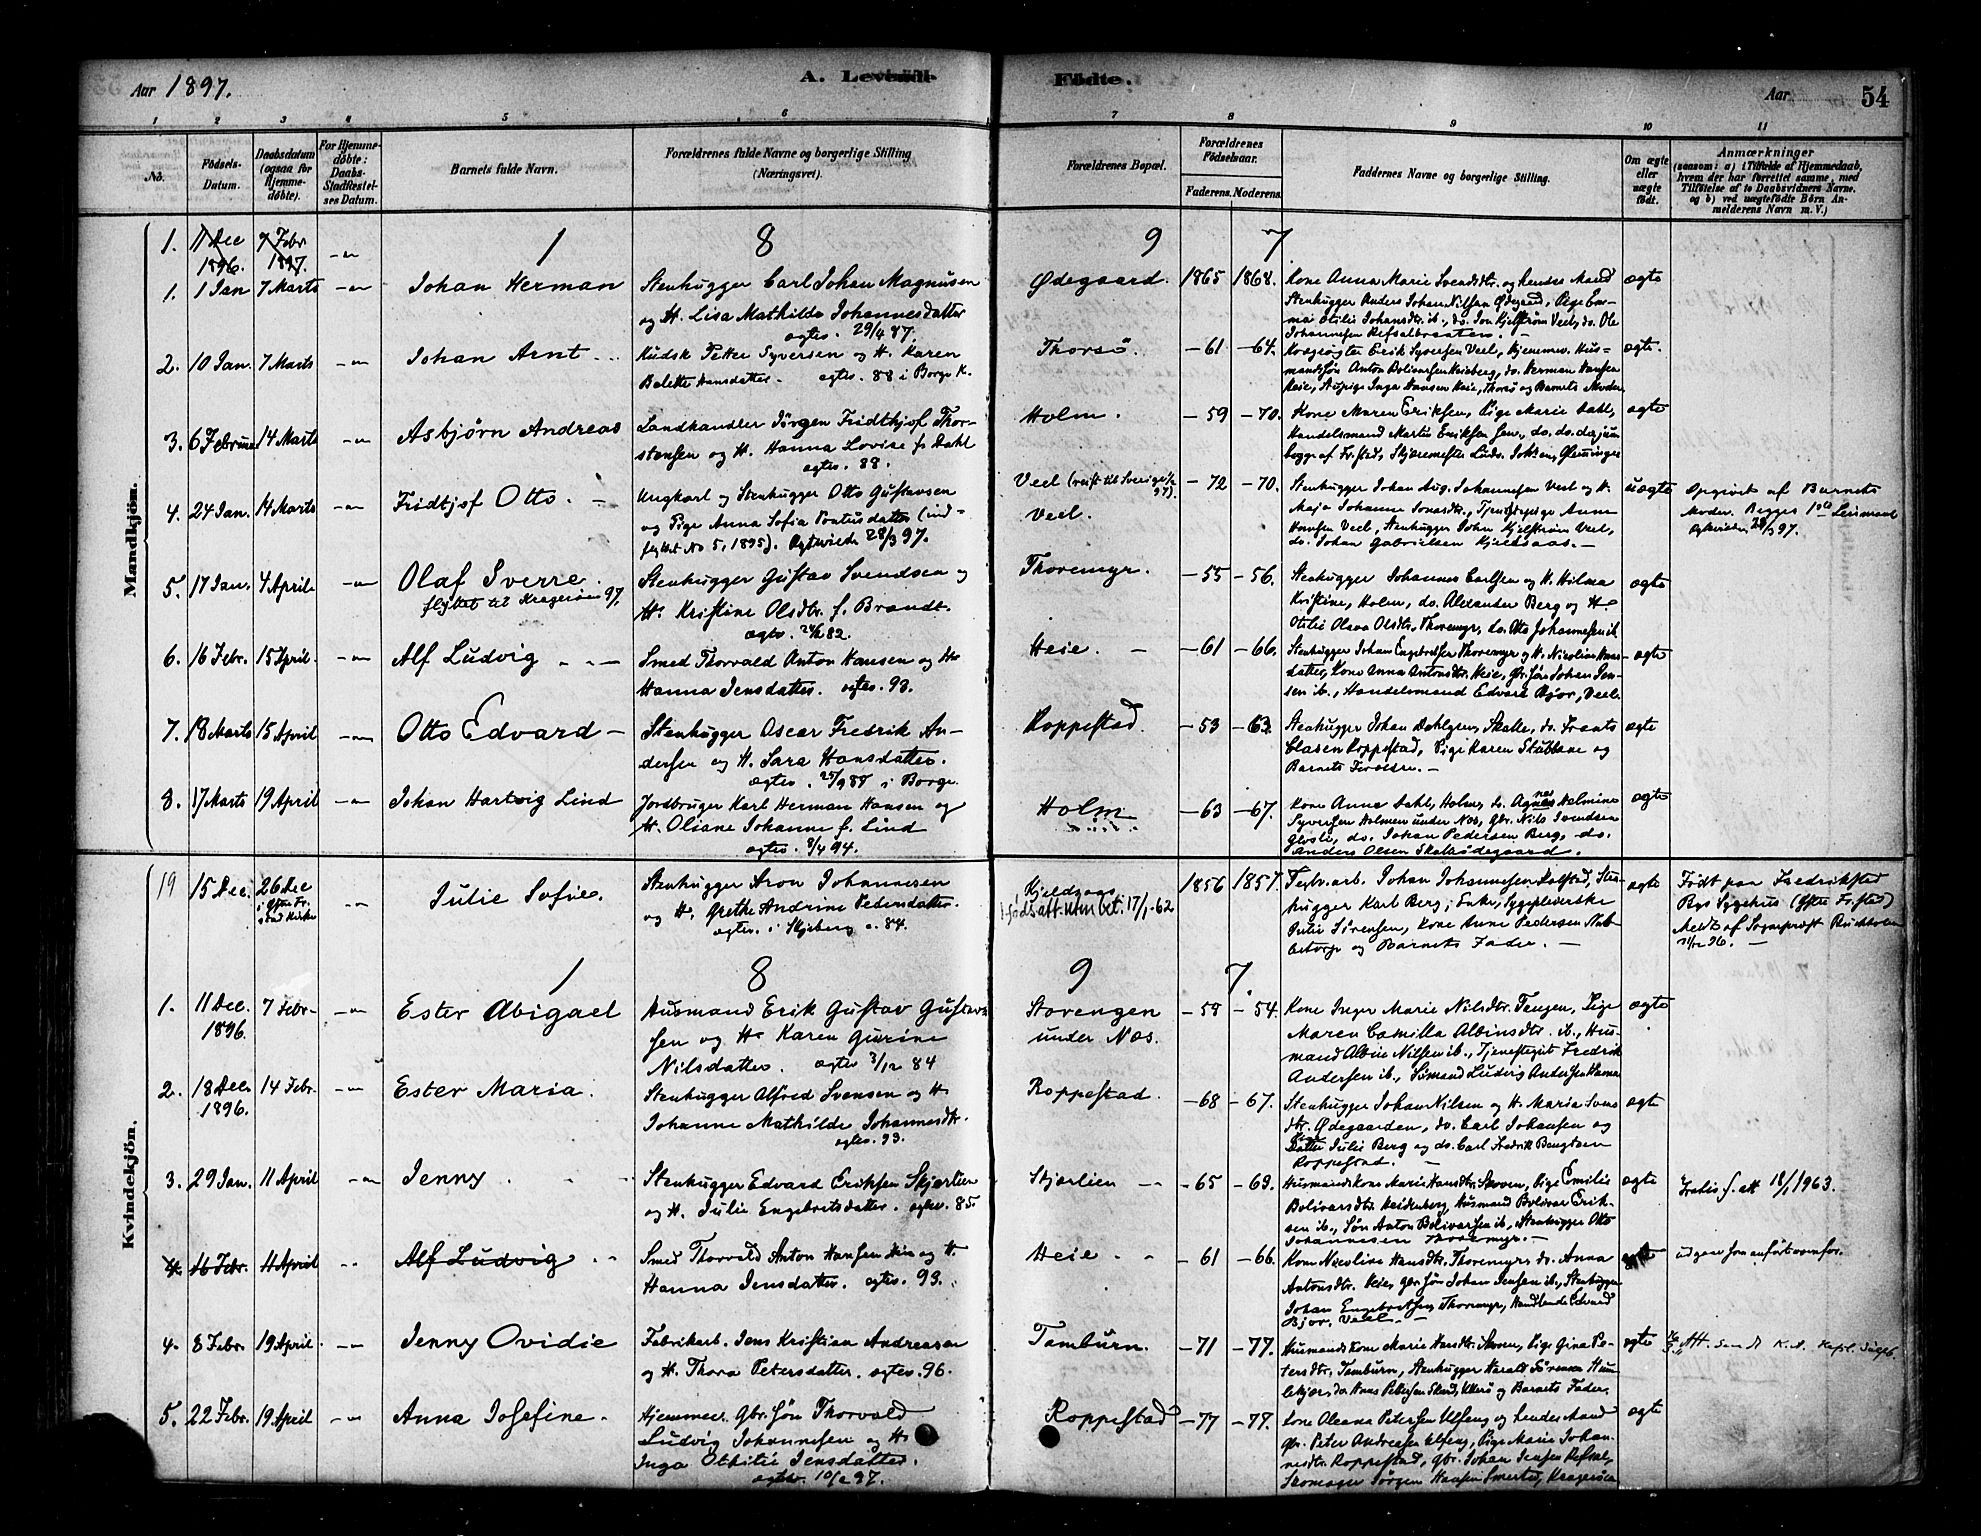 Aar 1897.
A. Levende
Fødte.
Aar
54
1 2 3 4 5 6 7 8 9 10 11
No.
Fødsels-
Datum.
Daabsdatum
(ogsaa for
Hjemme-
døbte).
For Hjemme-
døbte:
Daabs-
Stadfæstel-
ses Datum.
Barnets fulde Navn.
Forældrenes fulde Navne og borgerlige Stilling
(Næringsvei).
Forældrenes Bopæl.
Forældrenes
Fødselsaar.
Faderens. Moderens.
Faddernes Navne og borgerlige Stilling.
Om ægte
eller
uægte
født.
Anmærkninger
(saasom: a) i Tilfælde af Hjemmedaab,
hvem der har forrettet samme, med
Tilføielse af to Daabsvidners Navne.
og b) ved uægtefødte Børn An-
melderens Navn m. V.)
Mandkjøn.
1. 11 Dec 1896. 7 Febr 1897. 1 8 9 7
1. 1 Jan 7 Marts Johan Herman Stenhugger Carl Johan Magnusen
og H. Lisa Mathilde Johannesdatter
Ødegaard. 1865 1868. Kone Anna Marie Svendsdtr. og hendes Mand
Stenhugger Anders Johan Nilsen Ødegaard, Pige
ægte
2. 10 Jan. 7 Marts Johan Arnt Kudsk Petter Syversen og H. Karen
Bolette Hansdatter. ægtev. 88 i Borge K.
Thorsø. -61 -64. Erik Syversen Veel,
Inga Hansen Heie, Thorsø og Barnets Moder.
ægte.
3. 6 Februar 14 Marts Asbjørn Andreas Landhandler Jörgen Fridthjof Thor-
stensen og H. Hanna Lovise f. Dahl
ægtev. 88.
Holm. -59 -70. Kone Maren Eriksen, Pige Marie Dahl,
Handelsmand Martin Eriksen sen., do. do. do. jun
begge af Fr.sted,
ægte
4. 24 Jan. 14 Marts Fridtjof Otto. Ungkarl og Stenhugger Otto Gustavsen
og Pige Anna Sofia Pontusdatter (ind-
flyttet No 5, 1895).
Veel (reist til Sverige
Veel. -72 -70. Stenhugger Johan Aug. Johannesen Veel og H.
Maja Johanne
Hansen Veel, Stenhugger John Kjelstrøm Veel,
do. Johan Gabrielsen Kjeldsaas.
uægte Opgivet af Barnets
Moder. Begges 1ste Leiermaal
5. 17 Jan. 4 April Olaf Sverre.
flyttet til Kragerøen 97.
Stenhugger Gustav Svendsen og
H. Kristine Olsdtr. f. Brandt.
Thoremyr. -55 -56. Stenhugger Johannes Carlsen og H. Hilma
Kristine, Holm, do. Alexander Berg og H.
Otilie Olava Olsdtr, Thoremyr, do. Otto Johannesen ib.
ægte
6. 16 Febr. 15 April. Alf Ludvig Smed Thorvald Anton Hansen og H.
Hanna Jensdatter. ægtev. 93.
Heie. -61 -66. Stenhugger Johan Engebretsen Thoremyr og H. Nicoline Hans-
datter, Kone Anna Antonsdtr. Heie, Gbr. Søn Johan Jen-
sen ib., Handelsmand Edvard Bjor, Veel.
ægte
7. 18 Marts 15 April Otto Edvard Stenhugger Oscar Fredrik An-
dersen og H. Sara Hansdatter.
i Borge.
Roppestad. -53 -63. Stenhugger Johan Dahlgren, Skalle, do. Frants
Clasen Roppestad, Pige Karen Stubbene og
Barnets Forældre.
ægte
8. 17 Marts 19 April Johan Hartvig Lind Jordbruger Karl Herman Hansen og
H. Oliane Johanne f. Lind
ægtev. 8/4 94.
Holm -63 -67. Kone Anna Dahl, Holm, do. Agnes Helmine
Syversen Holmen under Nes, gbr. Nils Svendsen
do. Johan Pedersen Berg, do.
Anders Olsen Skaltødegaard.
ægte
Kvindekjøn.
19 15 Dec. 26 Dec Julie Sofie. Stenhugger Aron Johannesen
og H. Grethe Andrine Pedersdatter.
ægtev. i Skjeberg c. 84.
Kjeldsaas
fødsatt. utm bet. 17/1-62
1856 1857. Johan Johannesen
hugger Karl Berg,
Julie Sørensen, Kone Anne Pedersen
og Barnets Fader.
ægte Født paa Fredrikstad
Bys Sygehus
Meldt af Sognepræst
1 8 9 7.
1. 11 Dec. 1896. 7 Febr. Ester Abigael Husmand Erik Gustav Gustav-
sen og H. Karen Gurine
Nilsdatter. ægtev 3/12 84
Storengen
under Nes. -59 -54. Kone Inger Marie Nilsdtr. Tangen, Pige
Maren Camilla Albinsdtr. ib., Hus-
mand Albin Nilsen ib., Tjenestegut Fredrik
Andersen ib., Sømand Ludvig Andersen
ægte
2. 18 Dec. 1896. 14 Febr. Ester Maria. Stenhugger Alfred Svensen og H.
Johanne Mathilde Johannesdtr.
ægtev. 93.
Roppestad. -68 -67. Stenhugger Johan Nilsen og H. Maria Svens
dtr. Ødegaarden, do. Carl Johansen og
Datter Julie Berg og do. Carl Fredrik Bengtsen
Roppestad.
ægte
3. 29 Jan. 11 April Jenny. Stenhugger Edvard Eriksen Skjærlien
og H. Julie Engebretsdatter. ægtev. 85.
Skjærlien -65 -69. Husmandskone Marie Hansdtr. Skoven, Pige Emilie
Bolivarsdtr. Heidenberg, Husmand Bolivar Erik-
sen ib., Søn Anton Bolivarsen ib., Stenhugger Otto
Johannesen Thoremyr.
ægte 18/1 1963.
4. 16 Febr. 11 April Alf Ludvig Smed Thorvald Anton Hansen Heie og H.
Hanna Jensdatter. ægtev. 93.
Heie -61 -66. Kone Nicoline Hansdtr. Thoremyr, do. Anna
Antonsdtr. Heie, gbr. søn Johan Jensen ib., Stenhugger
Johan Engebretsen, Thoremyr, Handlende Edvard
Bjor, Veel.
ægte udgaar som anført ovenfor.
4. 8 Febr. 19 April. Jenny Ovidie Fabrikarb. Jens Kristian Andreassen
og H. Thora Petersdatter. ægtev. 96.
Tamburn. -71 -77. Husmandskone Marie Hansdtr. Skoven, Pige Gina Pe-
tersdtr. Tamburn, Stenhugger Harald Sørensen
og Barnets Fader.
ægte
5. 22 Febr. 19 April Anna Josefine. Hjemmev. Gbr. Søn Thorvald
Ludvig Johannesen og H.
Inga Othilie Jensdatter.
ægtev. 10/2 97.
Roppestad -77 -77. Kone Oleana Petersen Ulfeng og hendes Mand
gbr. Peter Andreasen Ulfeng, Pige Marie Johan-
nesdtr. Roppestad, gbr. Johan Jensen Refsal,
Skomager Jørgen Hansen Smertu, Kragerøen
ægte